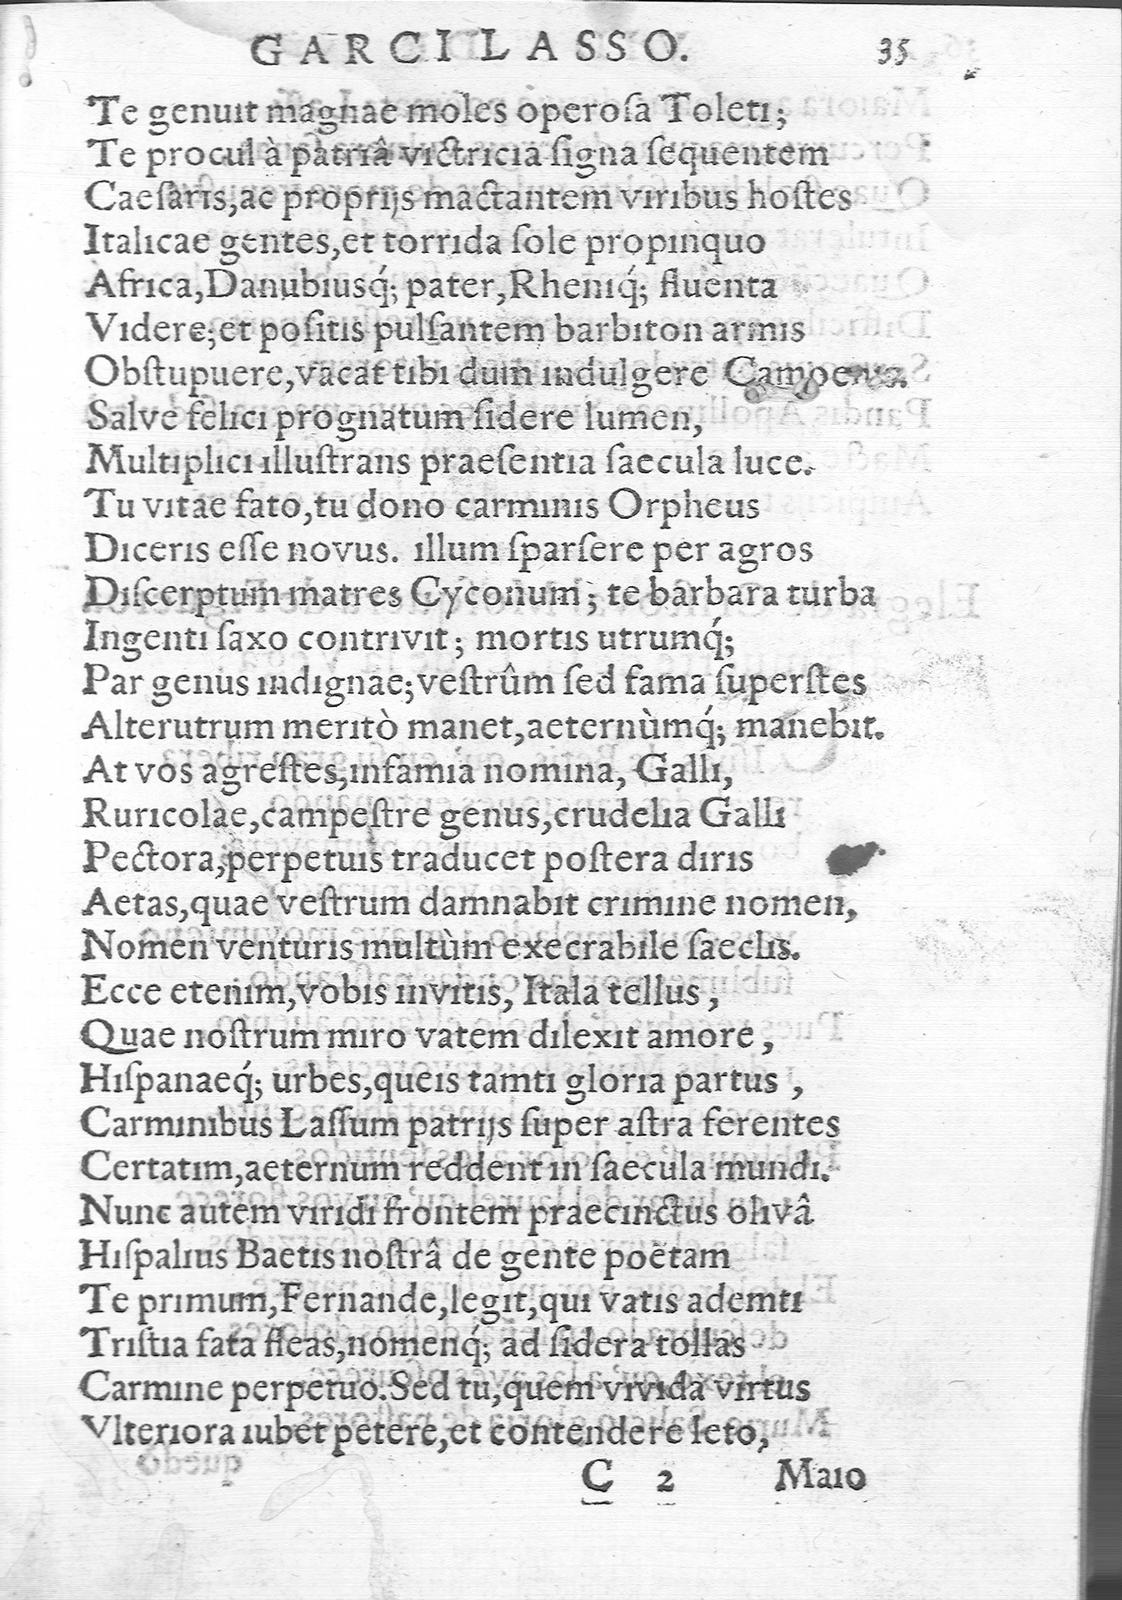 GARCILASSO. 35
Te genuit magnae moles operoſa Toleti;
Te procul à patriâ victricia ſigna ſequentem
Caeſaris, ac proprijs mactantem viribus hoſtes
Italicae gentes, et torrida ſole propinquo
Africa, Danubiusq́; pater, Rheniq́; fluenta
Videre; et poſitis pulſantem barbiton armis
Obſtupuere, vacat tibi dum indulgere Camoenis.
Salve felici prognatum ſidere lumen,
Multiplici illuſtrans praeſentia ſaecula luce.
Tu vitae fato, tu dono carminis Orpheus
Diceris eſſe novus. illum ſparſere per agros
Diſcerptum matres Cyconum; te barbara turba
Ingenti ſaxo contrivit; mortis utrumq́;
Par genus indignae; veſtrûm ſed fama ſuperſtes
Alterutrum meritò manet, aeternùmq́; manebit.
At vos agreſtes, infamia nomina, Galli,
Ruricolae, campeſtre genus, crudelia Galli
Pectora, perpetuis traducet poſtera diris
Aetas, quae veſtrum damnabit crimine nomen,
Nomen venturis multùm execrabile ſaeclis.
Ecce etenim, vobis invitis, Itala tellus,
Quae noſtrum miro vatem dilexit amore,
Hiſpanaeq́; urbes, queis tamti gloria partus,
Carminibus Laſſum patrijs ſuper aſtra ferentes
Certatim, aeternum reddent in ſaecula mundi.
Nunc autem viridi frontem praecinctus olivâ
Hiſpalius Baetis noſtrâ de gente poëtam
Te primum, Fernande, legit, qui vatis ademti
Triſtia fata fleas, nomenq́; ad ſidera tollas
Carmine perpetuo. Sed tu, quem vivida virtus
Vlteriora iubet petere, et contendere leto,
C 2 Maio